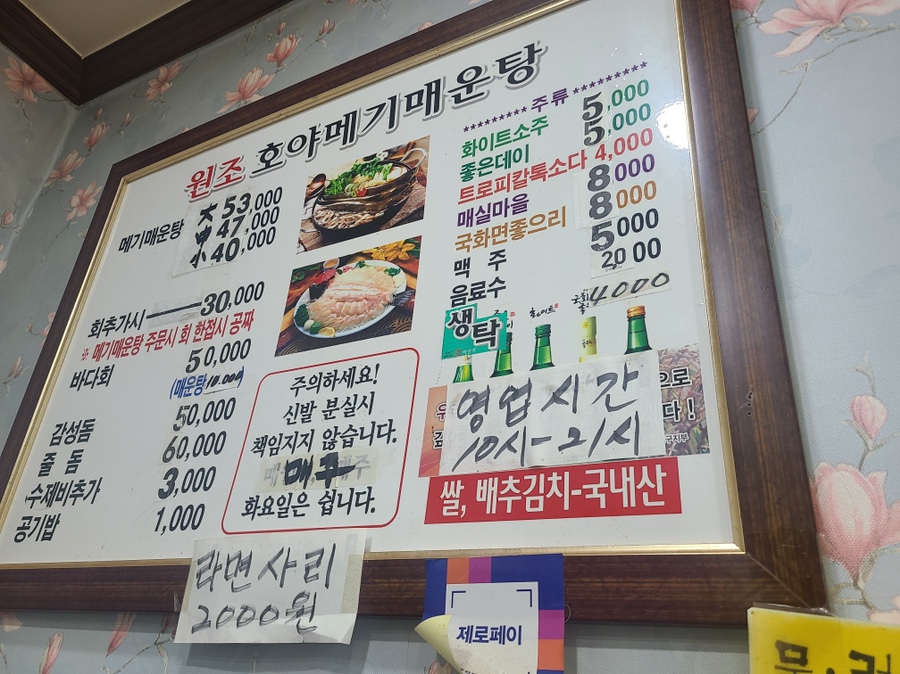 원조 호야메기매운탕
메기매운탕 大 53,000
中 47,000
小 40,000
회추가시 30,000
※ 메기매운탕 주문시 회 한접시 공짜
바다회 50,000
(매운탕10.000)
감성돔 50,000
줄 돔 60,000
수제비추가 3,000
공기밥 1,000
주의하세요!
신발 분실시
책임지지 않습니다.
매주
화요일은 쉽니다.
********* 주 류 *********
화이트소주 5,000
좋은데이 5,000
트로피칼톡소다 4,000
매실마을 8,000
국화면좋으리 8,000
맥 주 5,000
음료수 2000
생탁 4000
영업시간
10시-21시
으로
다!
쌀, 배추김치-국내산
라면사리
2000원
제로페이